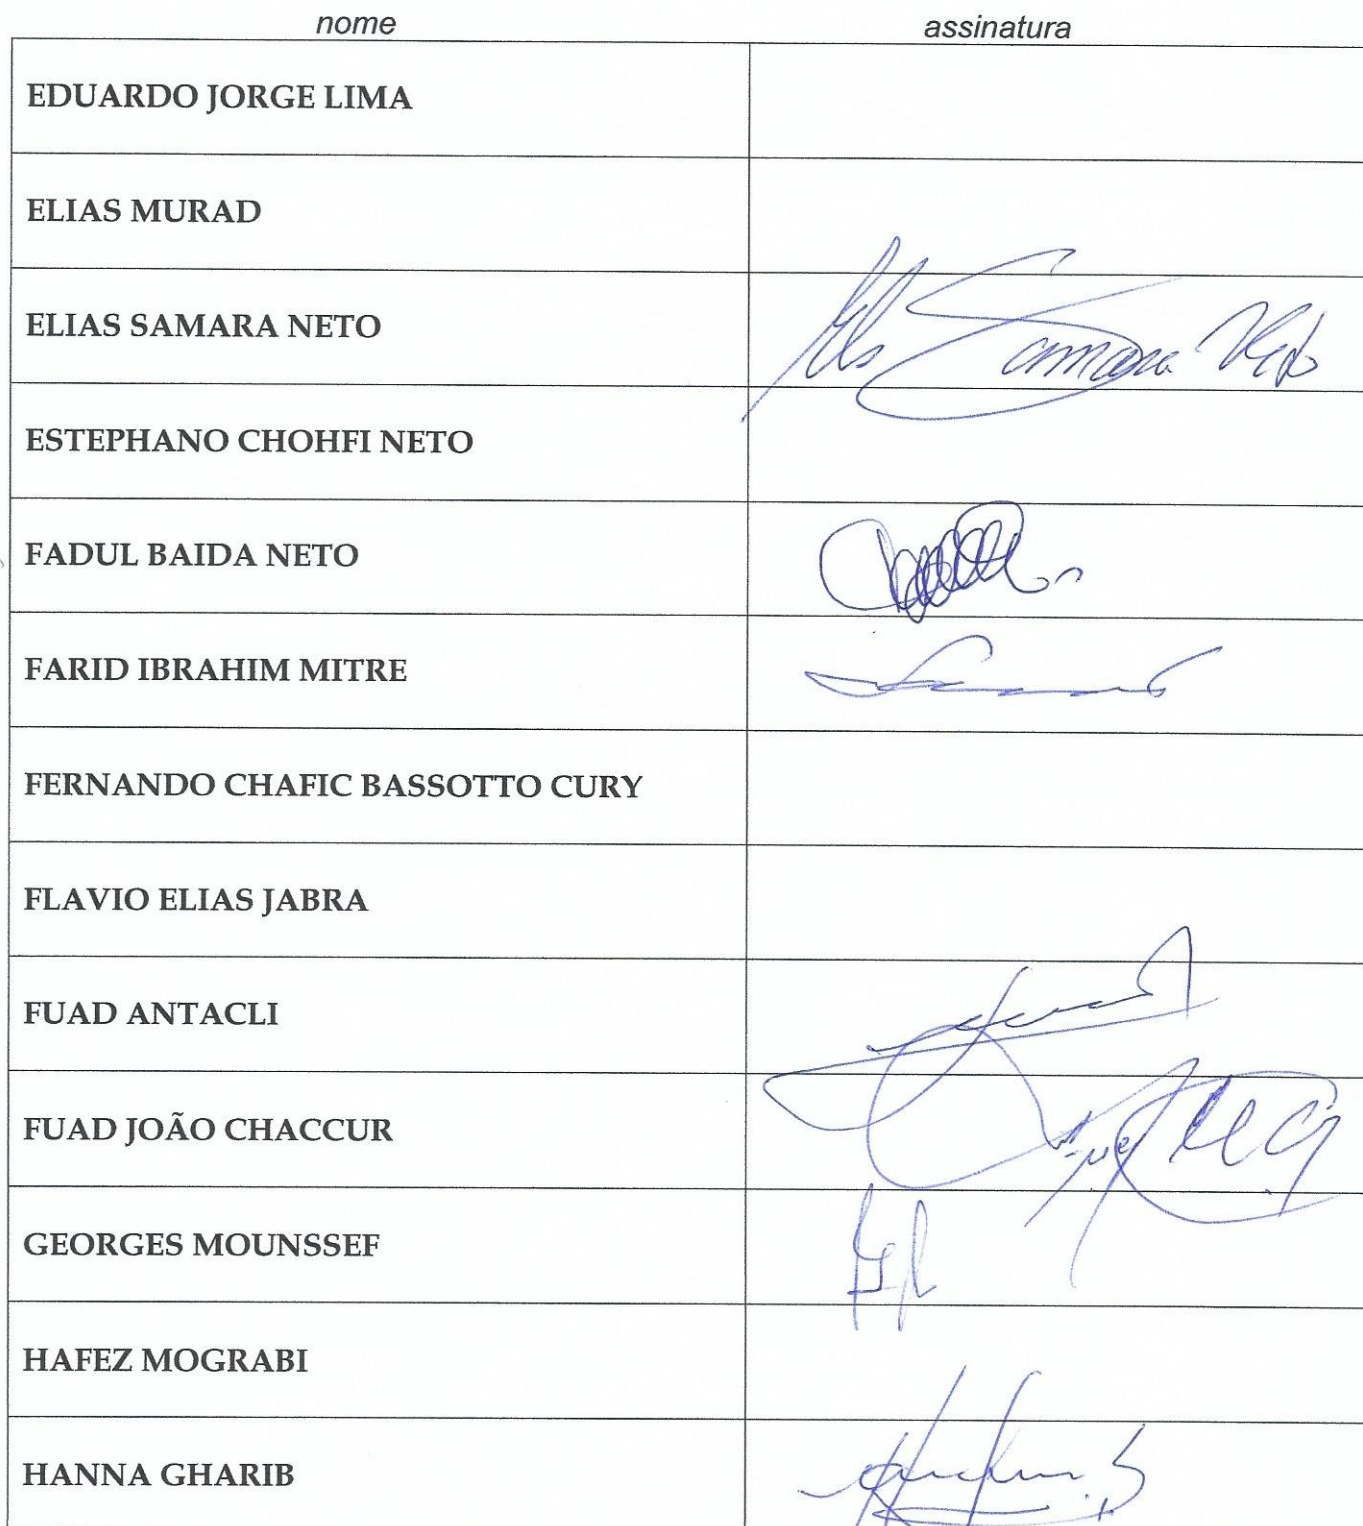 nome assinatura
EDUARDO JORGE LIMA
ELIAS MURAD
ELIAS SAMARA NETO Samara Neto
ESTEPHANO CHOHFI NETO
FADUL BAIDA NETO
FARID IBRAHIM MITRE
FERNANDO CHAFIC BASSOTTO CURY
FLAVIO ELIAS JABRA
FUAD ANTACLI
FUAD JOÃO CHACCUR
GEORGES MOUNSSEF
HAFEZ MOGRABI
HANNA GHARIB